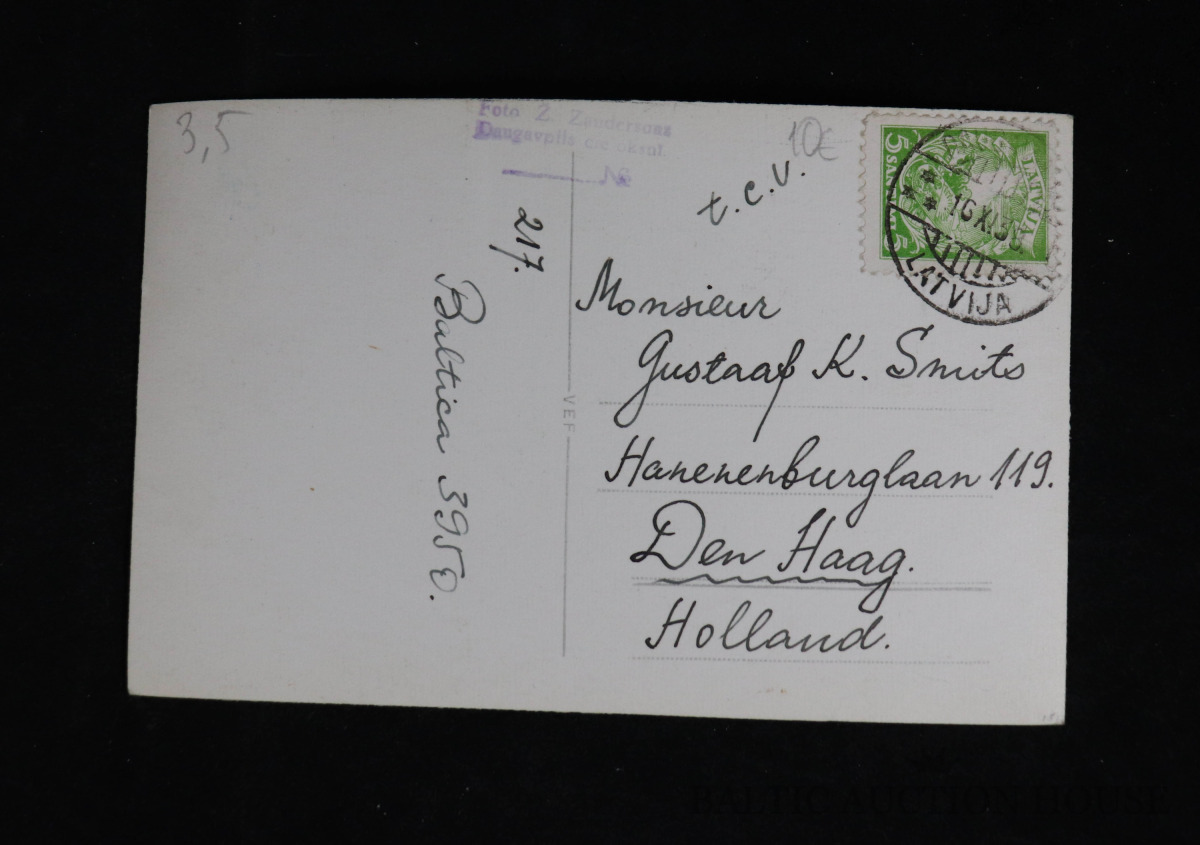 3,5
Foto Z. Zandersons
Daugavpils
№
10€
t.c.v.
5 SANT. 5
LATVIJA
16 XI 3
LATVIJA
217.
Baltica 3950.
VEF
Monsieur
Gustaaf K. Smits
Hanenenburglaan 119.
Den Haag.
Holland.
BALTIC AUCTION HOUSE